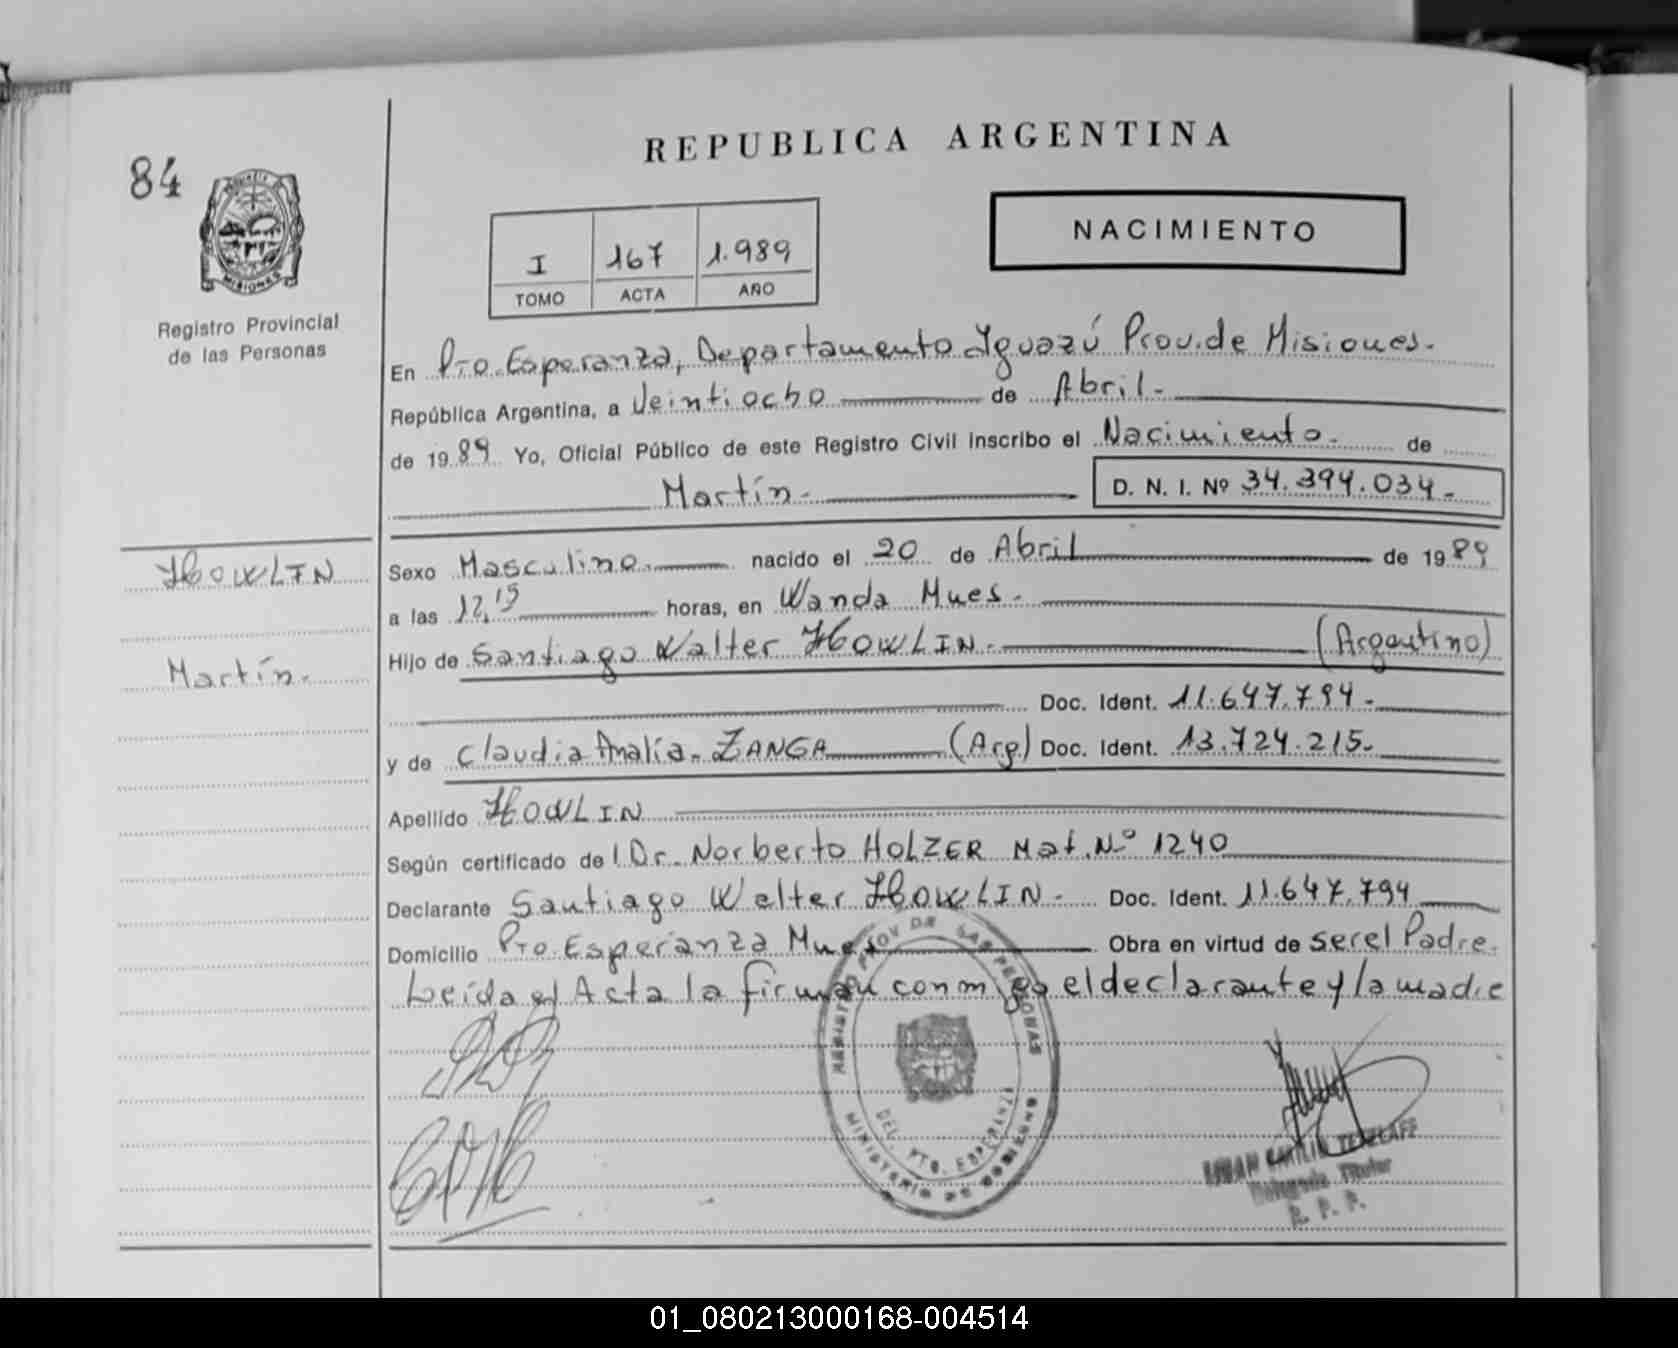 REPUBLICA ARGENTINA
84
NACIMIENTO
I 167 1.989
TOMO ACTA AÑO
MISIONES
Registro Provincial
de las Personas
En Pto. Esperanza, Departamento Iguazú Prov. de Misiones.
República Argentina, a Veintiocho de Abril.
de 1989 Yo, Oficial Público de este Registro Civil inscribo el Nacimiento. de
Martín. D. N. I. Nº 34.394.034.
HOWLIN
Martín.
Sexo Masculino. nacido el 20 de Abril de 1989
a las 12,15 horas, en Wanda Mnes.
Hijo de Santiago Walter HOWLIN. (Argentino)
Doc. Ident. 11.647.794.
y de Claudia Analía. ZANGA (Arg) Doc. Ident. 13.724.215.
Apellido HOWLIN
Según certificado de Dr. Norberto HOLZER Mat. Nº 1240
Declarante Santiago Walter HOWLIN. Doc. Ident. 11.647.794
Domicilio Pto. Esperanza Mnes. Obra en virtud de ser el Padre.
Leída el Acta la firman conmigo el declarante y la madre
REGISTRO PROV DE LAS PERSONAS
DEL. PTO. ESPERANZA
MINISTERIO DE GOBIERNO
Delegado Titular
R. P. P.
01_080213000168-004514